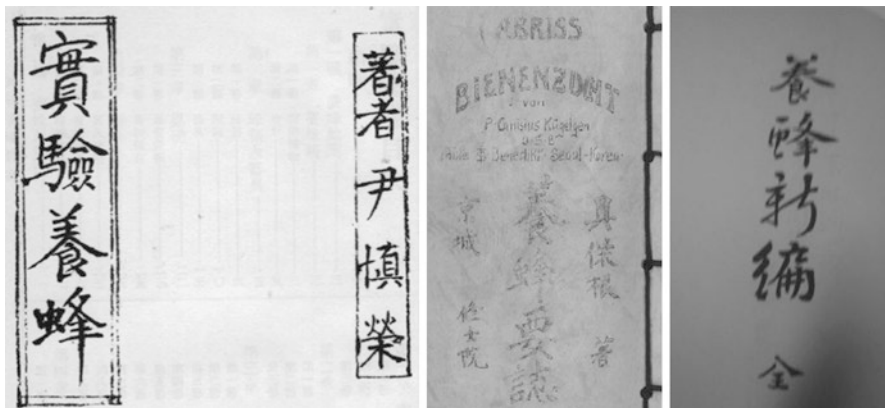 實驗養蜂
著者 尹慎榮
ABRISS
BIENENZUCHT
von
P. Canisius Kügelgen
O.S.B.
Abtei St. Benedikt Seoul-Korea
具傑根 著
養蜂要誌
京城
養蜂新編 全